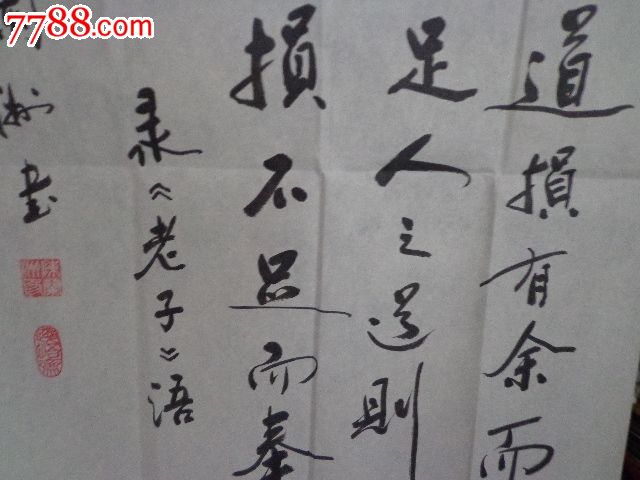 7788.com
道損有余而
足人之道則
損不足而奉
录《老子》语
洲書